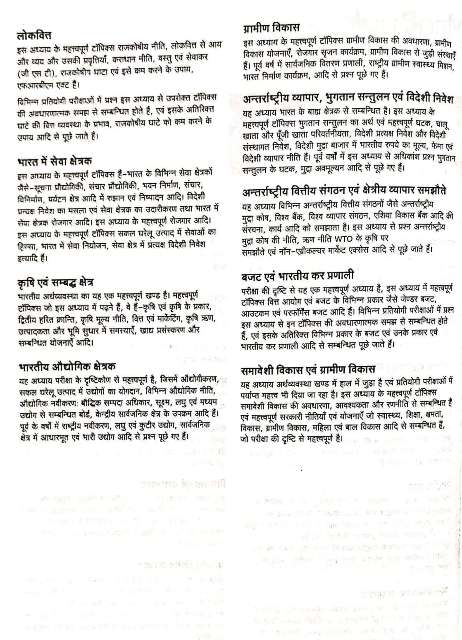 लोकवित्त
इस अध्याय के महत्त्वपूर्ण टॉपिक्स राजकोषीय नीति, लोकवित्त से आय
और व्यय और उसकी प्रवृत्तियाँ, कराधान नीति, वस्तु एवं सेवाकर
(जी एस टी), राजकोषीय घाटा एवं इसे कम करने के उपाय,
एफआरबीएम एक्ट हैं।
विभिन्न प्रतियोगी परीक्षाओं में प्रश्न इस अध्याय से उपरोक्त टॉपिक्स
की अवधारणात्मक समझ से सम्बन्धित होते हैं, एवं इसके अतिरिक्त
घाटे की वित्त व्यवस्था के प्रभाव, राजकोषीय घाटे को कम करने के
उपाय आदि से पूछे जाते हैं।
भारत में सेवा क्षेत्रक
इस अध्याय के महत्त्वपूर्ण टॉपिक्स हैं-भारत के विभिन्न सेवा क्षेत्रकों
जैसे-सूचना प्रौद्योगिकी, संचार प्रौद्योगिकी, भवन निर्माण, संचार,
विनिर्माण, पर्यटन क्षेत्र आदि में रुझान एवं निष्पादन आदि। विदेशी
प्रत्यक्ष निवेश का मसला एवं सेवा क्षेत्रक का उदारीकरण तथा भारत में
सेवा क्षेत्रक रोजगार आदि। इस अध्याय के महत्त्वपूर्ण रोजगार आदि।
इस अध्याय के महत्त्वपूर्ण टॉपिक्स सकल घरेलू उत्पाद में सेवाओं का
हिस्सा, भारत में सेवा नियोजन, सेवा क्षेत्र में प्रत्यक्ष विदेशी निवेश
इत्यादि हैं।
कृषि एवं सम्बद्ध क्षेत्र
भारतीय अर्थव्यवस्था का यह एक महत्त्वपूर्ण खण्ड है। महत्त्वपूर्ण
टॉपिक्स जो इस अध्याय में पढ़ने हैं, वे हैं-कृषि एवं कृषि के प्रकार,
द्वितीय हरित क्रान्ति, कृषि मूल्य नीति, वित्त एवं मार्केटिंग, कृषि ऋण,
उत्पादकता और भूमि सुधार में समस्याएँ, खाद्य प्रसंस्करण और
सम्बन्धित योजनाएँ आदि।
भारतीय औद्योगिक क्षेत्रक
यह अध्याय परीक्षा के दृष्टिकोण से महत्त्वपूर्ण है, जिसमें औद्योगीकरण,
सकल घरेलू उत्पाद में उद्योगों का योगदान, विभिन्न औद्योगिक नीति,
औद्योगिक नवीकरण, बौद्धिक सम्पदा अधिकार, सूक्ष्म, लघु एवं मध्यम
उद्योग से सम्बन्धित बोर्ड, केन्द्रीय सार्वजनिक क्षेत्र के उपक्रम आदि हैं।
पूर्व के वर्षों में राष्ट्रीय नवीकरण, लघु एवं कुटीर उद्योग, सार्वजनिक
क्षेत्र में आधारभूत एवं भारी उद्योग आदि से प्रश्न पूछे गए हैं।
ग्रामीण विकास
इस अध्याय के महत्त्वपूर्ण टॉपिक्स ग्रामीण विकास की अवधारणा, ग्रामीण
विकास योजनाएँ, रोजगार सृजन कार्यक्रम, ग्रामीण विकास से जुड़ी संस्थाएँ
हैं। पूर्व वर्ष में सार्वजनिक वितरण प्रणाली, राष्ट्रीय ग्रामीण स्वास्थ्य मिशन,
भारत निर्माण कार्यक्रम, आदि से प्रश्न पूछे गए हैं।
अन्तर्राष्ट्रीय व्यापार, भुगतान सन्तुलन एवं विदेशी निवेश
यह अध्याय भारत के बाह्य क्षेत्रक से सम्बन्धित है। इस अध्याय के
महत्त्वपूर्ण टॉपिक्स भुगतान सन्तुलन का अर्थ एवं महत्त्वपूर्ण घटक, चालू
खाता और पूँजी खाता परिवर्तनीयता, विदेशी प्रत्यक्ष निवेश और विदेशी
संस्थागत निवेश, विदेशी मुद्रा बाजार में भारतीय रुपये का मूल्य, फेमा एवं
विदेशी व्यापार नीति हैं। पूर्व वर्षों में इस अध्याय से अधिकांश प्रश्न भुगतान
सन्तुलन के घटक, मुद्रा अवमूल्यन आदि से पूछे गए हैं।
अन्तर्राष्ट्रीय वित्तीय संगठन एवं क्षेत्रीय व्यापार समझौते
यह अध्याय विभिन्न अन्तर्राष्ट्रीय वित्तीय संगठनों जैसे अन्तर्राष्ट्रीय
मुद्रा कोष, विश्व बैंक, विश्व व्यापार संगठन, एशिया विकास बैंक आदि की
संरचना, कार्य आदि को समझाता है। इस अध्याय से प्रश्न अन्तर्राष्ट्रीय
मुद्रा कोष की नीति, ऋण नीति WTO के कृषि पर
समझौते एवं नॉन-एग्रीकल्चर मार्केट एक्सेस आदि से पूछे जाते हैं।
बजट एवं भारतीय कर प्रणाली
परीक्षा की दृष्टि से यह एक महत्त्वपूर्ण अध्याय है, इस अध्याय में महत्त्वपूर्ण
टॉपिक्स वित्त आयोग एवं बजट के विभिन्न प्रकार जैसे जेण्डर बजट,
आउटकम एवं परफॉर्मेंस बजट आदि हैं। विभिन्न प्रतियोगी परीक्षाओं में प्रश्न
इस अध्याय से इन टॉपिक्स की अवधारणात्मक समझ से सम्बन्धित होते
हैं, एवं इसके अतिरिक्त विभिन्न प्रकार के बजट एवं उनके प्रकार एवं
भारतीय कर प्रणाली आदि से सम्बन्धित पूछे जाते हैं।
समावेशी विकास एवं ग्रामीण विकास
यह अध्याय अर्थव्यवस्था खण्ड में हाल में जुड़ा है एवं प्रतियोगी परीक्षाओं में
पर्याप्त महत्त्व भी दिया जा रहा है। इस अध्याय के महत्त्वपूर्ण टॉपिक्स
समावेशी विकास की अवधारणा, आवश्यकता और रणनीति से सम्बन्धित हैं
एवं महत्त्वपूर्ण सरकारी नीतियाँ एवं योजनाएँ जो स्वास्थ्य, शिक्षा, क्षमता,
विकास, ग्रामीण विकास, महिला एवं बाल विकास आदि से सम्बन्धित हैं,
जो परीक्षा की दृष्टि से महत्त्वपूर्ण है।